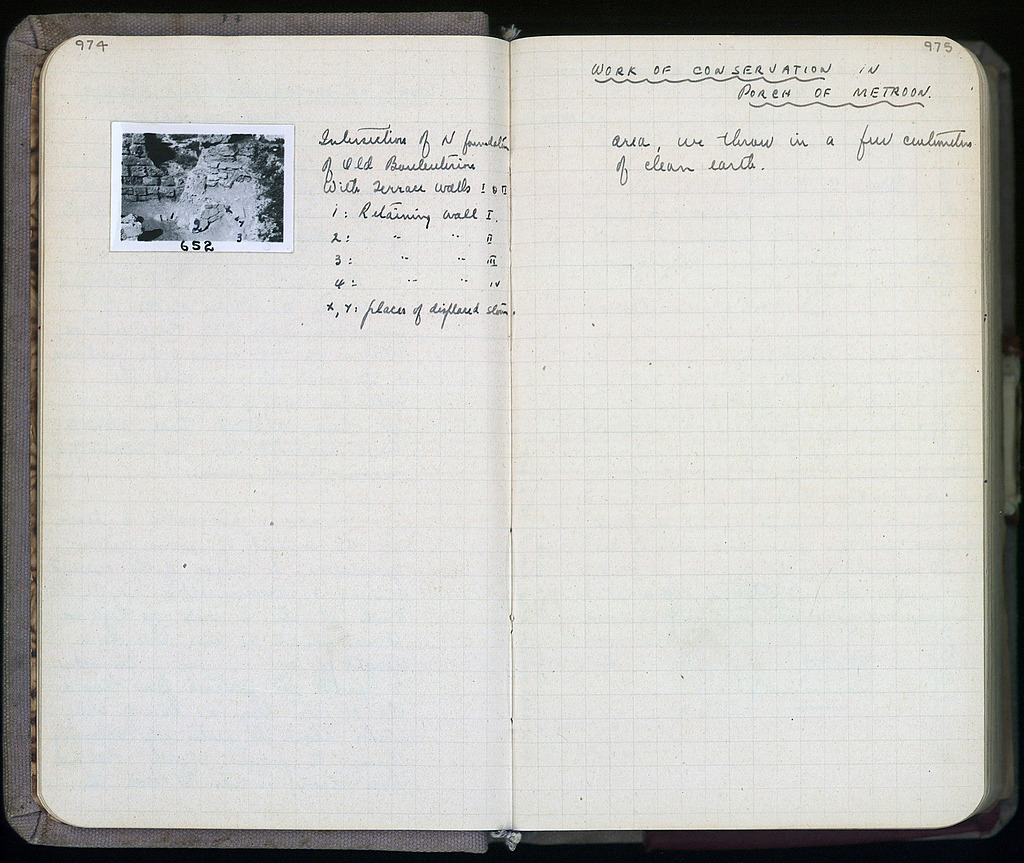 974
Intersection of N foundation
of Old Bouleuterion
With Terrace walls I & II
1: Retaining wall I.
2: " " II
3: " " III
4: " " IV
x, y: places of displaced stones.
2
3
652
975
WORK OF CONSERVATION IN
PORCH OF METROON.
area, we throw in a few centimeters
of clean earth.